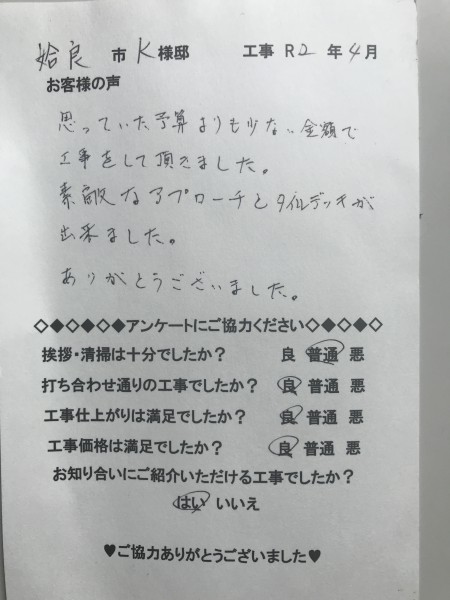 姶良 市 K 様邸 工事 R2 年 4 月
お客様の声
思っていた予算よりも少ない金額で
工事をして頂きました。
素敵なアプローチとタイルデッキが
出来ました。
ありがとうございました。
◇◆◇◆◇◆アンケートにご協力ください◇◆◇◆◇
挨拶・清掃は十分でしたか? 良 普通 悪
打ち合わせ通りの工事でしたか? 良 普通 悪
工事仕上がりは満足でしたか? 良 普通 悪
工事価格は満足でしたか? 良 普通 悪
お知り合いにご紹介いただける工事でしたか?
はい いいえ
♥ご協力ありがとうございました♥